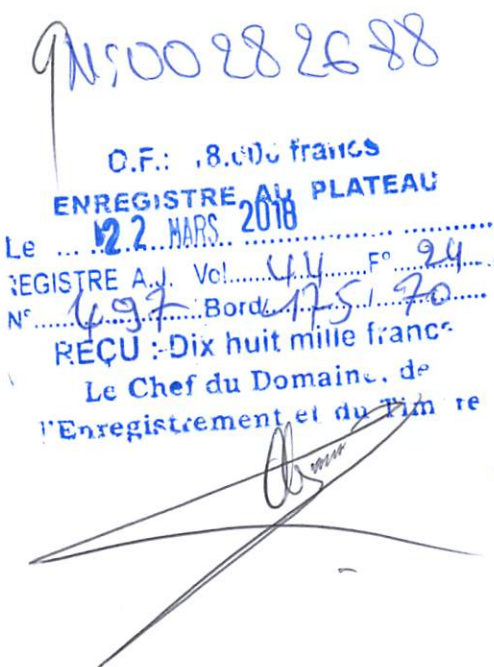 N°:00282688
D.F.: 18.000 francs
ENREGISTRE AU PLATEAU
Le ... 22 MARS 2018 ..............
REGISTRE A.J. Vol....44....F°....24....
N°....497....Bord...175./.70....
REÇU : Dix huit mille francs
Le Chef du Domaine, de
l'Enregistrement et du Timbre